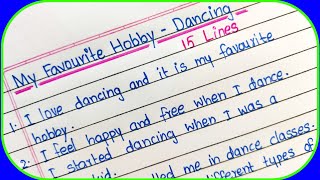 My Favourite Hobby - Dancing
15 Lines
1. I love dancing and it is my favourite
hobby.
2. I feel happy and free when I dance.
I started dancing when I was a
kid.
lled me in dance classes.
different types of